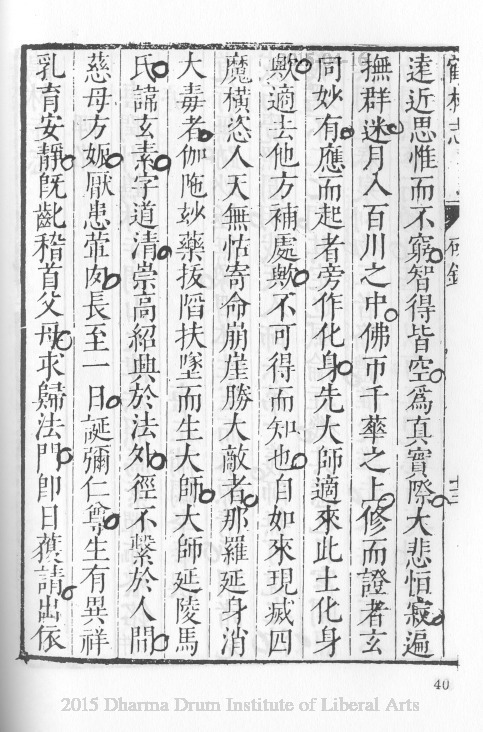 達近思惟而不窮智得皆空為真實際大悲恒寂遍
撫群迷月入百川之中佛帀千華之上修而證者玄
同妙有應而起者旁作化身先大師適來此土化身
歟適去他方補處歟不可得而知也自如來現滅四
魔橫恣人天無怙寄命崩崖勝大敵者那羅延身消
大毒者伽陁妙藥拔㴞扶墜而生大師大師延陵馬
氏諱玄素字道清崇高紹興於法外徑不繫於人間
慈母方娠厭患葷肉長至一日誕彌仁尊生有異祥
乳育安靜旣齔稽首父母求歸法門卽日獲請出依
40
2015 Dharma Drum Institute of Liberal Arts